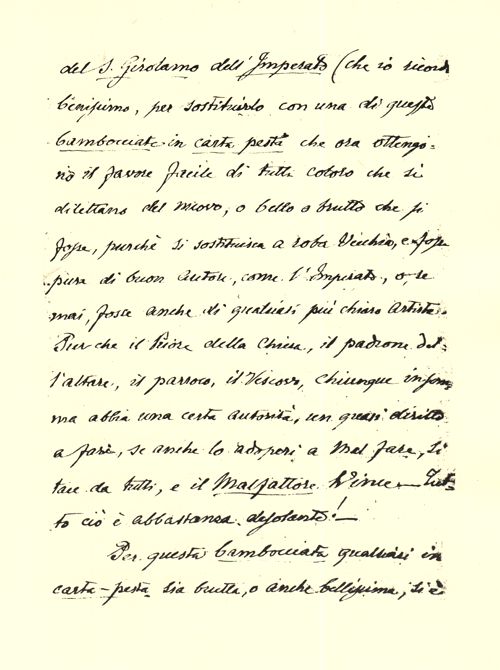 del S. Girolamo dell'Imperato (che io ricordo
benissimo, per sostituirlo con una di queste
bambocciate in carta pesta che ora ottengo-
no il favore facile di tutti coloro che si
dilettano del nuovo, o bello o brutto che si
fosse, purchè si sostituisca a roba vecchia, e fosse
pura di buon autore, come l'Imperato, o se
mai, fosse anche di qualsiasi più chiaro artista.
Pur che il Priore della Chiesa, il padrone del-
l'altare, il parroco, il Vescovo, chiunque insom-
ma abbia una certa autorità, un quasi diritto
a fare, se anche lo adoperi a mal fare, si
tace da tutti, e il Malfattore Vince — Tut-
to ciò è abbastanza desolante! —
Per questa bambocciata qualsiasi in
carta-pesta sia brutta, o anche bellissima, si è